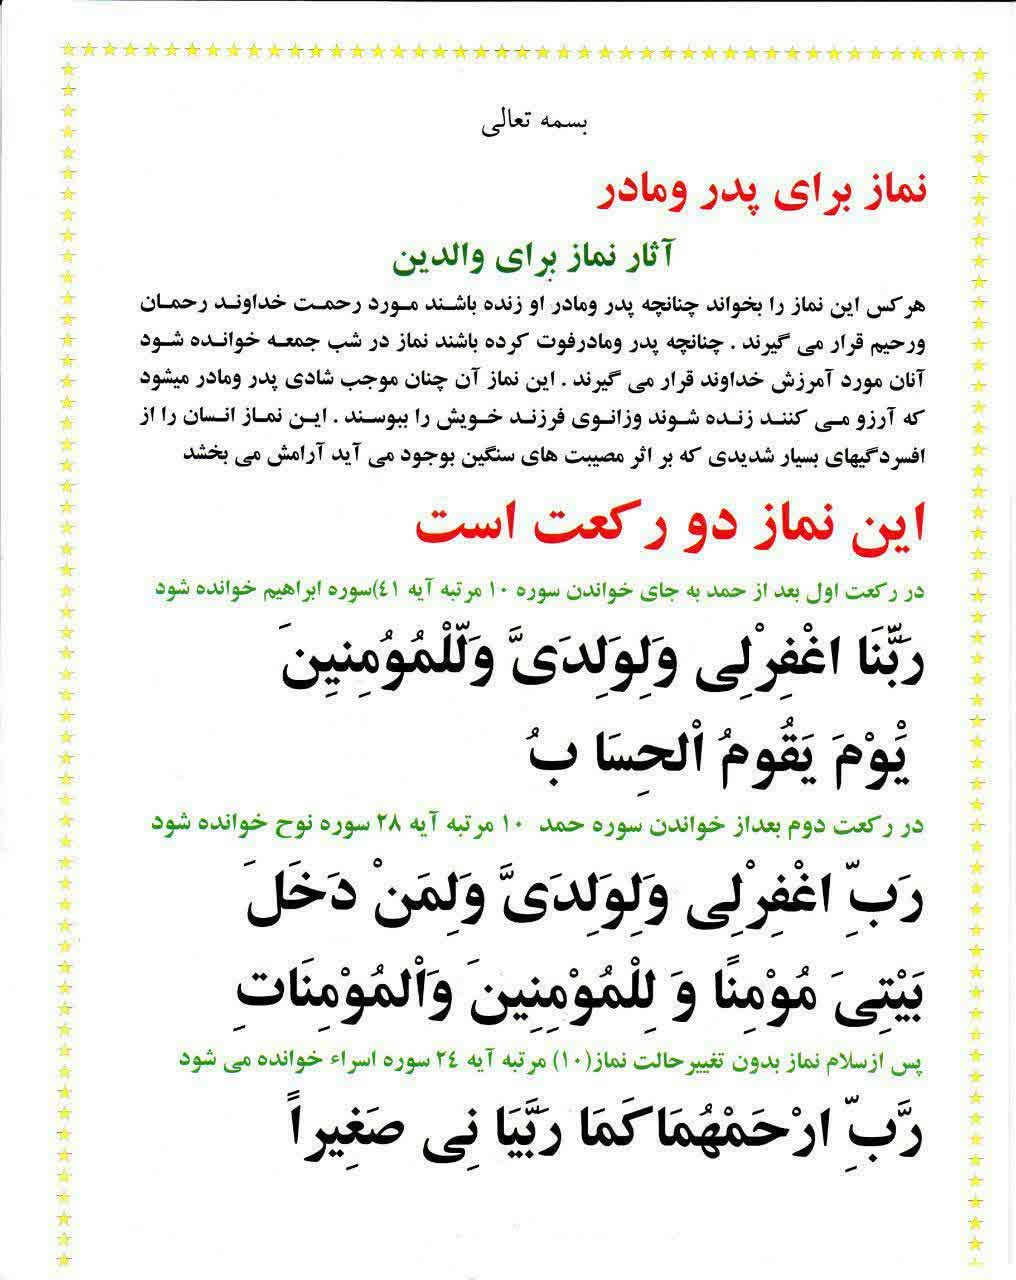 بسمه تعالی
نماز برای پدر ومادر
آثار نماز برای والدین
هرکس این نماز را بخواند چنانچه پدر ومادر او زنده باشند مورد رحمت خداوند رحمان
ورحیم قرار می گیرند . چنانچه پدر ومادرفوت کرده باشند نماز در شب جمعه خوانده شود
آنان مورد آمرزش خداوند قرار می گیرند . این نماز آن چنان موجب شادی پدر ومادر میشود
که آرزو می کنند زنده شوند وزانوی فرزند خویش را ببوسند . این نماز انسان را از
افسردگیهای بسیار شدیدی که بر اثر مصیبت های سنگین بوجود می آید آرامش می بخشد
این نماز دو رکعت است
در رکعت اول بعد از حمد به جای خواندن سوره ۱۰ مرتبه آیه ٤۱)سوره ابراهیم خوانده شود
رَبَّنَا اغْفِرْلِی وَلِوَلِدَیَّ وَلّلْمُوُمِنیِنَ
یْوْمَ یَقُومُ اْلحِسَا بُ
در رکعت دوم بعداز خواندن سوره حمد ۱۰ مرتبه آیه ۲۸ سوره نوح خوانده شود
رَبِّ اغْفِرْلِی وَلِوَلِدَیَّ وَلِمَنْ دَخَلَ
بَیْتِیَ مُوْمِنًا وَ لِلْمُوْمِنِینَ وَاْلمُوْمِنَاتِ
پس ازسلام نماز بدون تغییرحالت نماز(۱۰) مرتبه آیه ۲٤ سوره اسراء خوانده می شود
رَّبِّ ارْحَمْهُمَاکَمَا رَبَّیَا نِی صَغِیراً